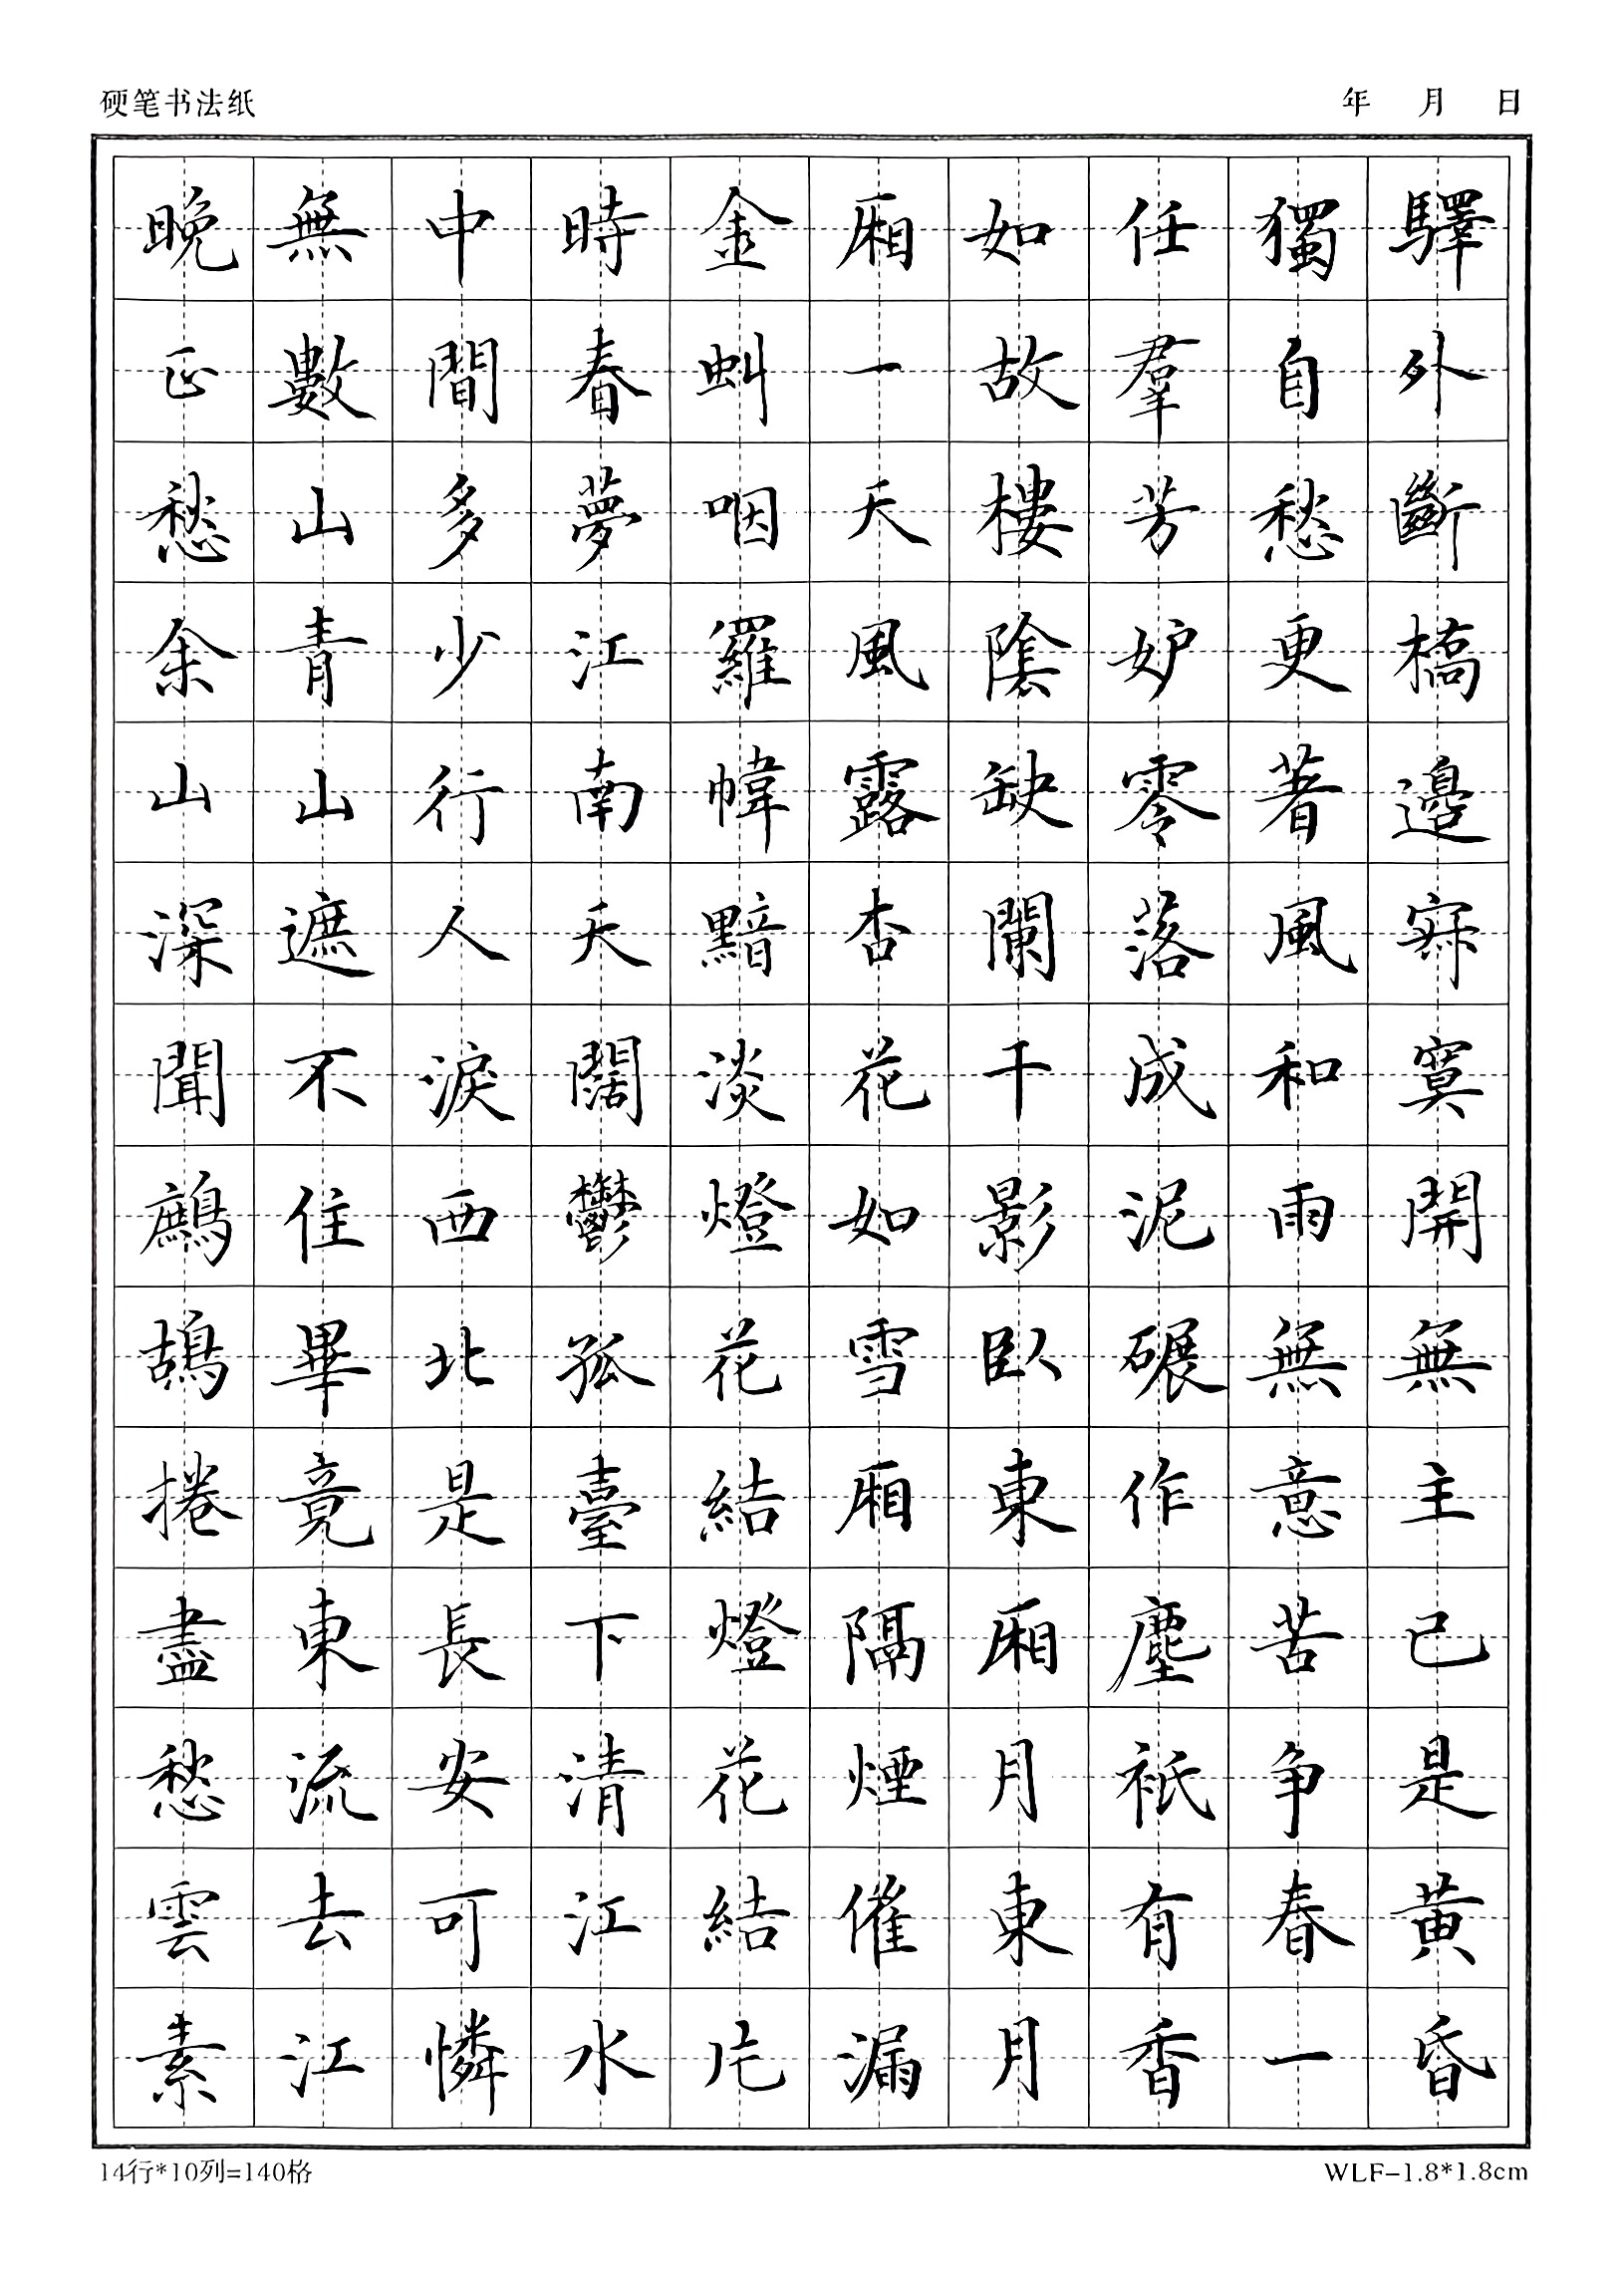 硬笔书法纸
年 月 日
驛外斷橋邊寂寞開無主已是黄昏
獨自愁更著風和雨無意苦争春一
任羣芳妒零落成泥碾作塵衹有香
如故樓陰缺闌干影臥東厢月東月
厢一天風露杏花如雪厢隔煙催漏
金虯咽羅幃黯淡燈花結燈花結片
時春夢江南天闊鬱孤臺下清江水
中間多少行人淚西北是長安可憐
無數山青山遮不住畢竟東流去江
晚正愁余山深聞鷓鴣捲盡愁雲素
14行*10列=140格
WLF-1.8*1.8cm